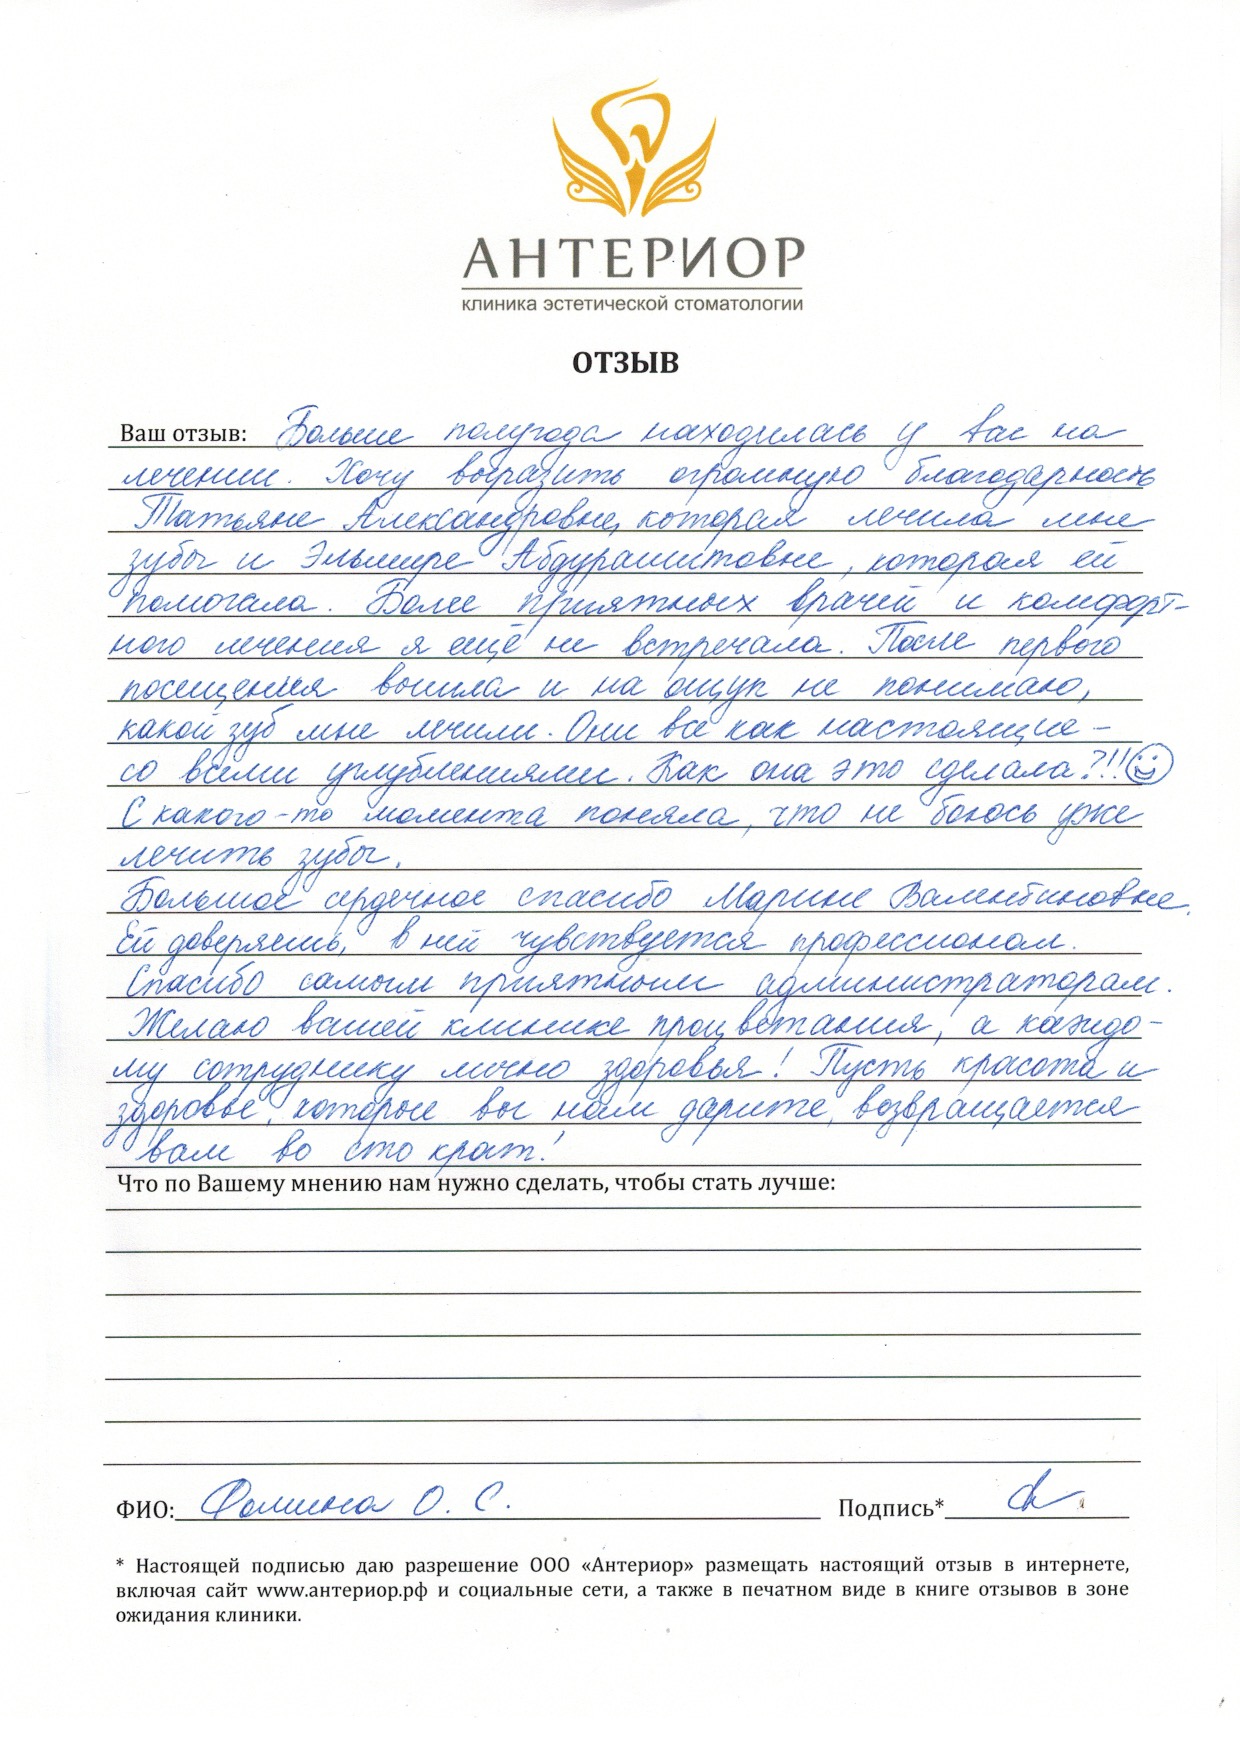 АНТЕРИОР
клиника эстетической стоматологии
ОТЗЫВ
Ваш отзыв: Больше полугода находилась у вас на
лечении. Хочу выразить огромную благодарность
Татьяне Александровне, которая лечила мне
зубы и Эльмире Абдурашитовне, которая ей
помогала. Более приятных врачей и комфорт-
ного лечения я ещё не встречала. После первого
посещения вышла и на ощуп не понимаю,
какой зуб мне лечили. Они все как настоящие -
со всеми углублениями. Как она это сделала?!!
С какого-то момента поняла, что не боюсь уже
лечить зубы.
Большое сердечное спасибо Марине Валентиновне.
Ей доверяешь, в ней чувствуется профессионал.
Спасибо самым приятным администраторам.
Желаю вашей клинике процветания, а каждо-
му сотруднику лично здоровья! Пусть красота и
здоровье, которые вы нам дарите, возвращается
вам во сто крат!
Что по Вашему мнению нам нужно сделать, чтобы стать лучше:
ФИО: Фомина О. С. Подпись*
* Настоящей подписью даю разрешение ООО «Антериор» размещать настоящий отзыв в интернете,
включая сайт www.антериор.рф и социальные сети, а также в печатном виде в книге отзывов в зоне
ожидания клиники.